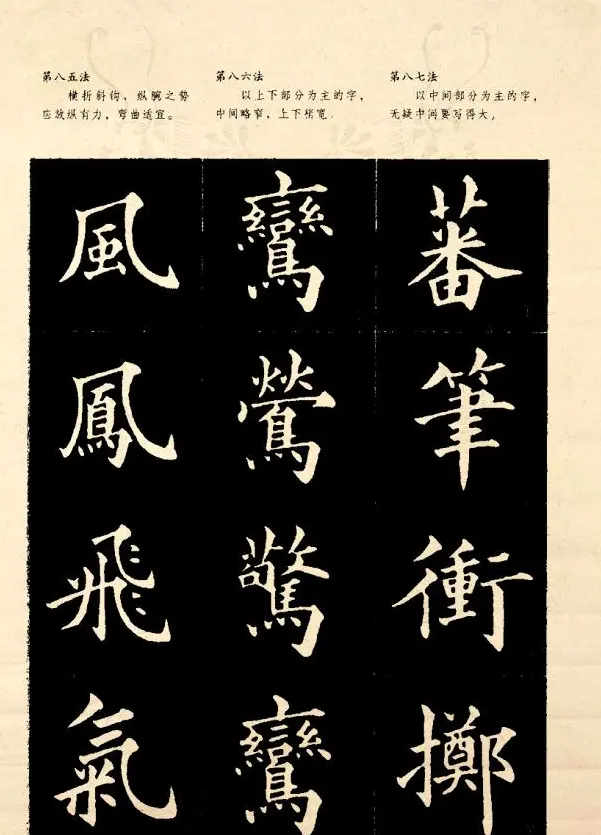 第八五法
横折斜钩，纵腕之势
应放纵有力，弯曲适宜。
第八六法
以上下部分为主的字，
中间略窄，上下稍宽．
第八七法
以中间部分为主的字，
无疑中间要写得大。
風
鳳
飛
氣
鸞
鶯
驚
鸞
蕃
筆
衝
擲